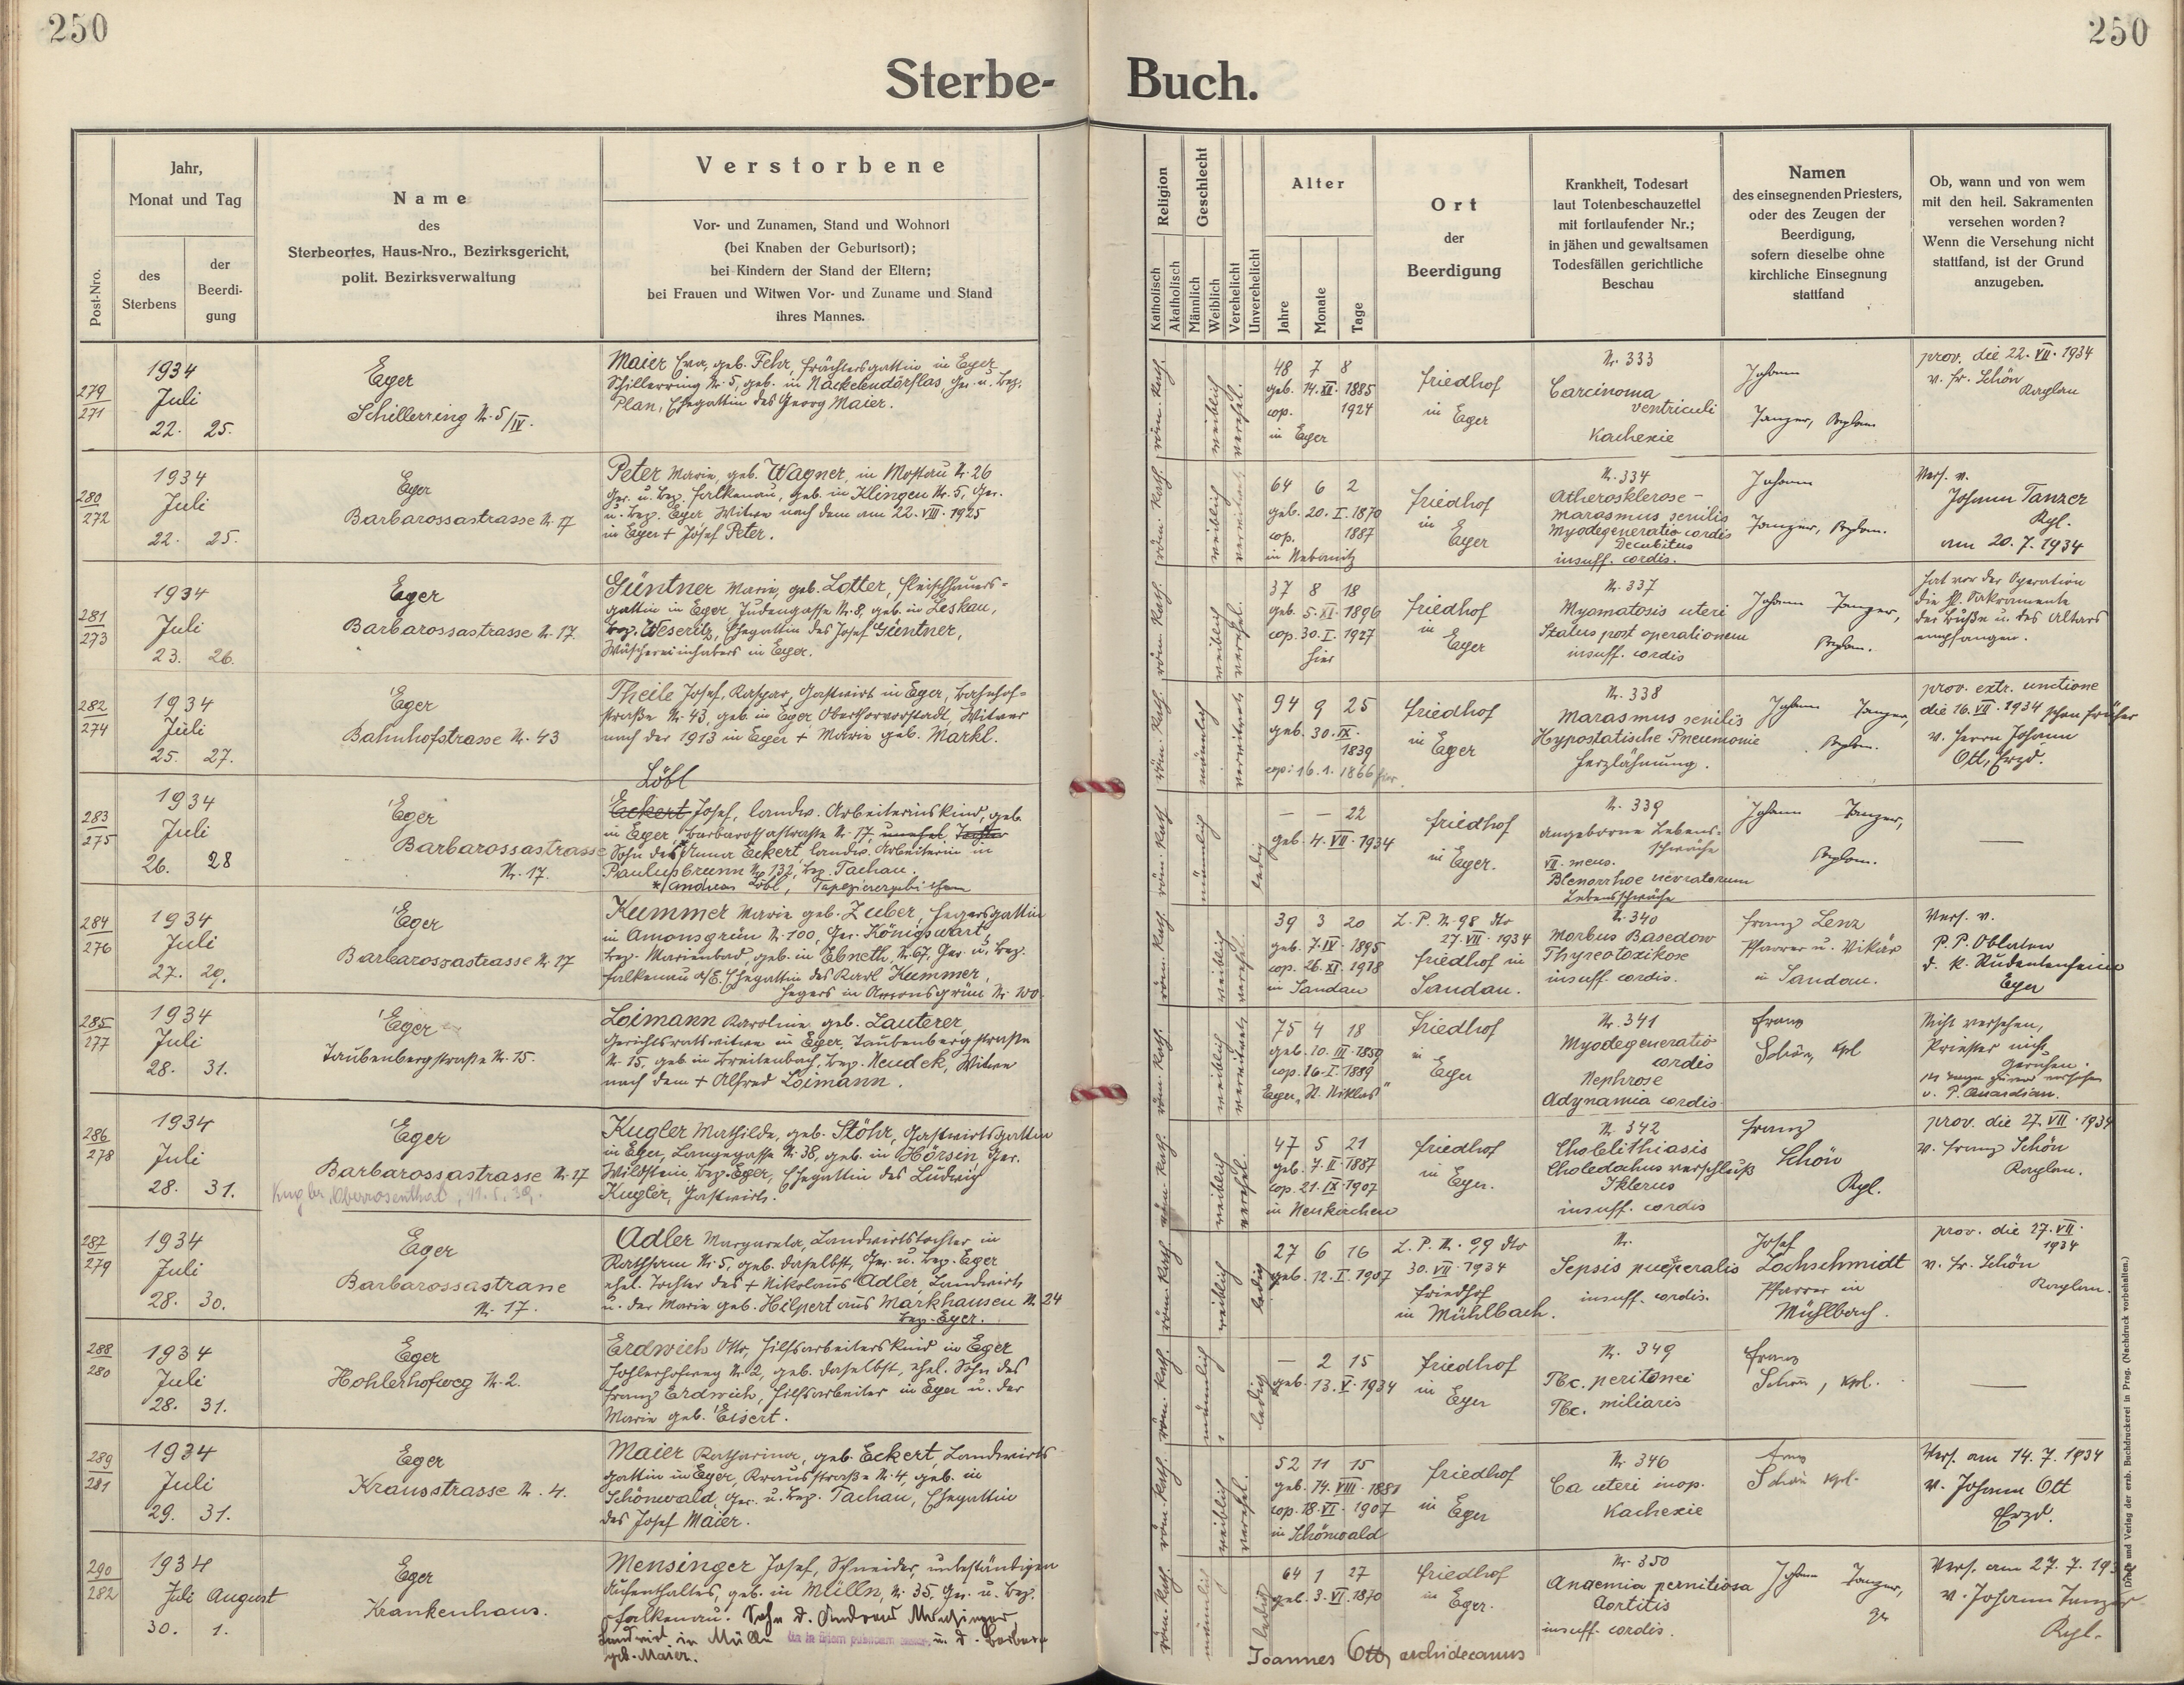 250
250
Sterbe-
Buch.
Post-Nro.
Jahr,
Monat und Tag
des
Sterbens
der
Beerdi-
gung
Name
des
Sterbeortes, Haus-Nro., Bezirksgericht,
polit. Bezirksverwaltung
Verstorbene
Vor- und Zunamen, Stand und Wohnort
(bei Knaben der Geburtsort);
bei Kindern der Stand der Eltern;
bei Frauen und Witwen Vor- und Zuname und Stand
ihres Mannes.
Religion
Katholisch
Akatholisch
Geschlecht
Männlich
Weiblich
Verehelicht
Unverehelicht
Alter
Jahre
Monate
Tage
Ort
der
Beerdigung
Krankheit, Todesart
laut Totenbeschauzettel
mit fortlaufender Nr.;
in jähen und gewaltsamen
Todesfällen gerichtliche
Beschau
Namen
des einsegnenden Priesters,
oder des Zeugen der
Beerdigung,
sofern dieselbe ohne
kirchliche Einsegnung
stattfand
Ob, wann und von wem
mit den heil. Sakramenten
versehen worden?
Wenn die Versehung nicht
stattfand, ist der Grund
anzugeben.
279
271
1934
Juli
22. 25.
Eger
Schillerring Nr. 5/IV.
Maier Eva, geb. Fehr, Frächtersgattin in Eger
Schillerring Nr. 5, geb. in Nackelendörflas, Ger. u. Bez.
Plan, Ehegattin des Georg Maier.
röm. kath.
weiblich
verehel.
48 7 8
geb. 14. XII. 1885
cop. 1924
in Eger
Friedhof
in Eger
Nr. 333
Carcinoma
ventriculi
Kachexie
Johann
Tanzer, Kaplan
prov. die 22. VII. 1934
v. Fr. Schön
Kaplan
280
272
1934
Juli
22. 25.
Eger
Barbarossastrasse Nr. 17
Peter Marie, geb. Wagner, in Mostau Nr. 26
Ger. u. Bez. Falkenau, geb. in Klingen Nr. 5, Ger.
u. Bez. Eger Witwe nach dem am 22. VIII. 1925
in Eger + Josef Peter.
röm. kath.
weiblich
64 6 2
geb. 20. I. 1870
cop. 1887
in Nebanitz
Friedhof
in
Eger
Nr. 334
Atherosklerose -
Marasmus senilis
Myodegeneratio cordis
Decubitus
insuff. cordis.
Johann
Tanzer, Kaplan.
Vers. v.
Johann Tanzer
Kpl.
am 20. 7. 1934
281
273
1934
Juli
23. 26.
Eger
Barbarossastrasse Nr. 17
Güntner Marie, geb. Lotter, Fleischhauers-
gattin in Eger, Judengasse Nr. 8, geb. in Leskau,
Bez. Weseritz, Ehegattin des Josef Güntner,
Wäschereiinhabers in Eger.
röm. kath.
weiblich
verehel.
37 8 18
geb. 5. XI. 1896
cop. 30. I. 1927
hier
Friedhof
in
Eger
Nr. 337
Myomatosis uteri
Status post operationem
insuff. cordis
Johann Tanzer,
Kaplan.
Hat vor der Operation
die hl. Sakramente
der Buße u. des Altars
empfangen.
282
274
1934
Juli
25. 27.
Eger
Bahnhofstrasse Nr. 43
Theile Josef, Kaspar, Gastwirt in Eger, Bahnhof-
straße Nr. 43, geb. in Eger Obertorvorstadt, Witwer
nach der 1913 in Eger + Marie geb. Markl.
röm. kath.
männlich
verwitwet
94 9 25
geb. 30. IX.
1839
cop: 16. 1. 1866 hier.
Friedhof
in Eger
Nr. 338
Marasmus senilis
Hypostatische Pneumonie
Herzlähmung.
Johann Tanzer,
Kaplan.
prov. extr. unctione
die 16. VII. 1934 schon früher
v. Herrn Johann
Ott, Erzd.
283
275
1934
Juli
26. 28
Eger
Barbarossastrasse
Nr. 17.
Löbl
Eckert Josef, landw. Arbeiterinskind, geb.
in Eger Barbarossastraße Nr. 17, unehel. Tochter
Sohn der Anna Eckert landw. Arbeiterin in
Paulusbrunn Nr. 132, Bez. Tachau.
*/ Andreas Löbl, Tapezierergehilfen
röm. kath.
männlich
ledig
— — 22
geb. 4. VII. 1934
Friedhof
in Eger.
Nr. 339
angeborne Lebens-
schwäche
VII. mens.
Blenorrhoe neonatorum
Lebensschwäche
Johann Tanzer,
Kaplan.
—
284
276
1934
Juli
27. 29.
Eger
Barbarossastrasse Nr. 17
Kummer Marie geb. Zuber, Hegersgattin
in Amonsgrün Nr. 100, Ger. Königswart,
Bez. Marienbad, geb. in Ebneth, Nr. 67, Ger. u. Bez.
Falkenau a/E. Ehegattin des Karl Kummer,
Hegers in Amonsgrün Nr. 100.
röm. kath.
weiblich
verehel.
39 3 20
geb. 7. IV. 1895
cop. 26. XI. 1918
in Sandau
L. P. Nr. 98 dto
27. VII. 1934
Friedhof in
Sandau.
Nr. 340
Morbus Basedow
Thyreotoxikose
insuff. cordis.
Franz Lenz
Pfarrer u. Vikär
in Sandau.
Vers. v.
P. P. Oblaten
d. k. Studentenheim
Eger
285
277
1934
Juli
28. 31.
Eger
Taubenbergstraße Nr. 15.
Loimann Karoline, geb. Lauterer,
Gerichtsratswitwe in Eger, Taubenbergstraße
Nr. 15, geb in Breitenbach, Bez. Neudek, Witwe
nach dem + Alfred Loimann.
röm. kath.
weiblich
verwitwet
75 4 18
geb. 10. III. 1859
cop. 16. I. 1889
Eger, "St. Niklas"
Friedhof
in
Eger
Nr. 341
Myodegeneratio
cordis
Nephrose
Adynamia cordis
Franz
Schön, Kpl
Nicht versehen,
Priester nicht
gerufen.
14 Tage zuvor versehen
v. P. Quardian.
286
278
1934
Juli
28. 31.
Eger
Barbarossastrasse Nr. 17
Kugler, Oberrosenthal, 11.5.39.
Kugler Mathilde, geb. Stöhr, Gastwirtsgattin
in Eger, Langegasse Nr. 38, geb. in Hörsin Ger.
Wildstein Bez. Eger, Ehegattin des Ludwig
Kugler, Gastwirts.
röm. kath.
weiblich
verehel.
47 5 21
geb. 7. II. 1887
cop. 21. IX 1907
in Neukirchen
Friedhof
in Eger.
Nr. 342
Cholelithiasis
Choledochus verschluß
Ikterus
insuff. cordis
Franz
Schön
Kpl.
prov. die 27. VII. 1934
v. Franz Schön
Kaplan.
287
279
1934
Juli
28. 30.
Eger
Barbarossastrasse
Nr. 17.
Adler Margareta, Landwirtstochter in
Rathsam Nr. 5, geb. daselbst, Ger. u. Bez. Eger
ehel. Tochter des + Nikolaus Adler, Landwirts
u. der Marie geb. Hilpert aus Markhausen Nr. 24
Bez. Eger.
röm. kath.
weiblich
ledig
27 6 16
geb. 12. I. 1907
L. P. Nr. 99 dto
30. VII. 1934
Friedhof
in Mühlbach.
Nr.
Sepsis puerperalis
insuff. cordis.
Josef
Lochschmidt
Pfarrer in
Mühlbach.
prov. die 27. VII.
1934
v. Fr. Schön
Kaplan.
288
280
1934
Juli
28. 31.
Eger
Hohlerhofweg Nr. 2.
Erdwich Otto, Hilfsarbeiterskind in Eger
Hohlerhofweg Nr. 2, geb. daselbst, ehel. Sohn des
Franz Erdwich, Hilfsarbeiter in Eger u. der
Marie geb. Eisert.
röm. kath.
männlich
ledig
— 2 15
geb. 13. V. 1934
Friedhof
in
Eger
Nr. 349
Tbc. peritonei
Tbc. miliaris
Franz
Schön, Kpl.
—
289
281
1934
Juli
29. 31.
Eger
Krausstrasse Nr. 4.
Maier Katharina, geb. Eckert, Landwirts
gattin in Eger, Krausstraße Nr. 4, geb. in
Schönwald, Ger. u. Bez. Tachau, Ehegattin
des Josef Maier.
röm. kath.
weiblich
verehel.
52 11 15
geb. 14. VIII. 1881
cop. 18. VI. 1907
in Schönwald
Friedhof
in
Eger
Nr. 346
Ca uteri inop.
Kachexie
Franz
Schön Kpl.
Vers. am 14. 7. 1934
v. Johann Ott
Erzd.
290
282
1934
Juli August
30. 1.
Eger
Krankenhaus.
Mensinger Josef, Schneider, unbeständigen
Aufenthaltes, geb. in Milln, Nr. 35, Ger. u. Bez.
Falkenau. Sohn d. Andreas
Landwirt in Mülln u. d. Barbara
geb. Maier.
röm. kath.
männlich
ledig
64 1 27
geb. 3. VI. 1870
Friedhof
in Eger.
Nr. 350
Anaemia pernitiosa
Aortitis
insuff. cordis.
Johann Tanzer,
Vers. am 27. 7. 193
v. Johann Tanzer
Kpl.
Joannes Ott, archidecanus
Druck und Verlag der erzb. Buchdruckerei in Prag. (Nachdruck vorbehalten.)